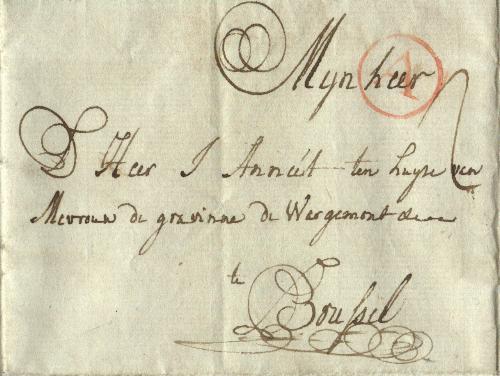 Mynheer
A
D Heer J Anneét ten huyse van
Mevrouw de gravinne de Wargemont &
te Boussel